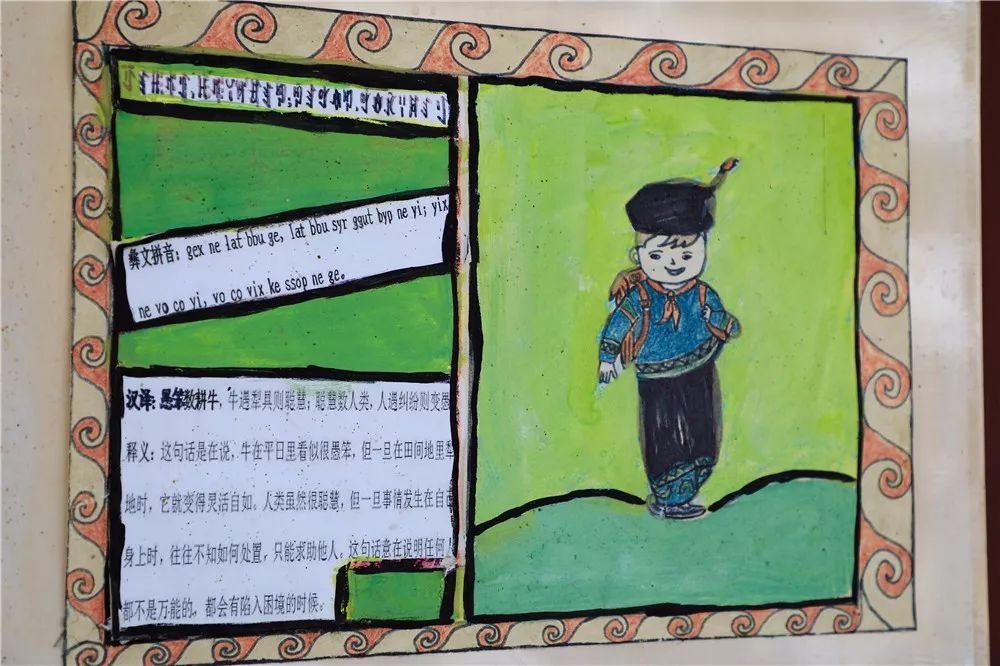 彝文拼音：gex ne lat bbu ge, lat bbu syr ggut byp ne yi; yix
ne vo co yi, vo co vix ke ssop ne ge。
汉译：愚笨数耕牛，牛遇犁具则聪慧；聪慧数人类，人遇纠纷则变愚
释义：这句话是在说，牛在平日里看似很愚笨，但一旦在田间地里犁
地时，它就变得灵活自如。人类虽然很聪慧，但一旦事情发生在自己
身上时，往往不知如何处置，只能求助他人。这句话意在说明任何人
都不是万能的，都会有陷入困境的时候。